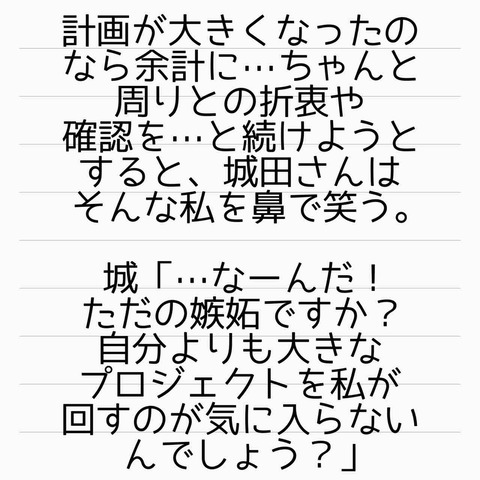 計画が大きくなったの
なら余計に…ちゃんと
周りとの折衷や
確認を…と続けようと
すると、城田さんは
そんな私を鼻で笑う。
城「…なーんだ！
ただの嫉妬ですか？
自分よりも大きな
プロジェクトを私が
回すのが気に入らない
んでしょう？」